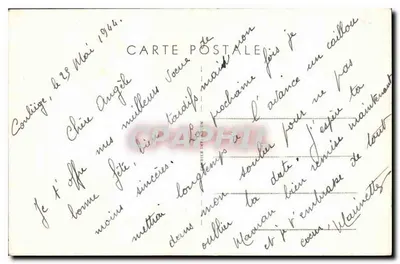 CARTE POSTALE
Conliège, le 23 Mai 1944
Chère Angèle
Je t'offre mes meilleurs voeux de
bonne fête, bien tardifs mais non
moins sincères. La prochaine fois je
mettrai longtemps à l'avance un caillou
dans mon soulier pour ne pas
oublier la date. J'espère ta
Maman bien remise maintenant
et je t'embrasse de tout
coeur,